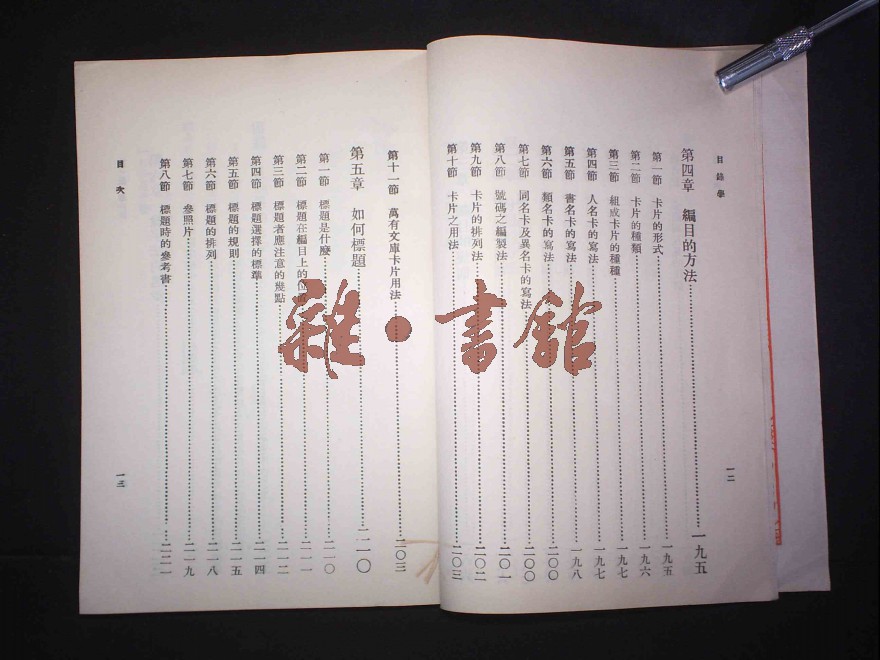 目錄學
第四章 編目的方法 一九五
第一節 卡片的形式 一九五
第二節 卡片的種類 一九六
第三節 組成卡片的種種 一九七
第四節 人名卡的寫法 一九七
第五節 書名卡的寫法 一九八
第六節 類名卡的寫法 二〇〇
第七節 同名卡及異名卡的寫法 二〇〇
第八節 號碼之編製法 二〇一
第九節 卡片的排列法 二〇二
第十節 卡片之用法 二〇三
一二
第十一節 萬有文庫卡片用法 二〇三
第五章 如何標題 二一〇
第一節 標題是什麼 二一〇
第二節 標題在編目上的位置 二一一
第三節 標題者應注意的幾點 二一二
第四節 標題選擇的標準 二一四
第五節 標題的規則 二一五
第六節 標題的排列 二一八
第七節 參照片 二一九
第八節 標題時的參考書 二二一
目次
一三
雜·書館